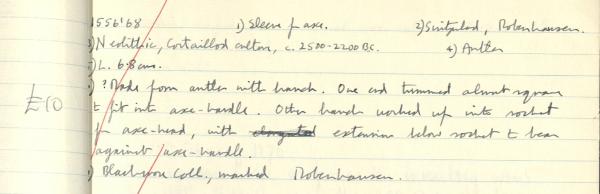 1556'68 1) Sleeve f axe. 2) Switzerland, Robenhausen.
3) Neolithic, Cortaillod culture, c. 2500-2200 BC. 4) Antler
5) L. 6.8 cms.
) ? Made from antler with branch. One end trimmed almost square
£10 to fit into axe-handle. Other branch worked up into socket
for axe-head, with extension below socket to bear
against axe-handle.
) Blackmore Coll., marked Robenhausen.